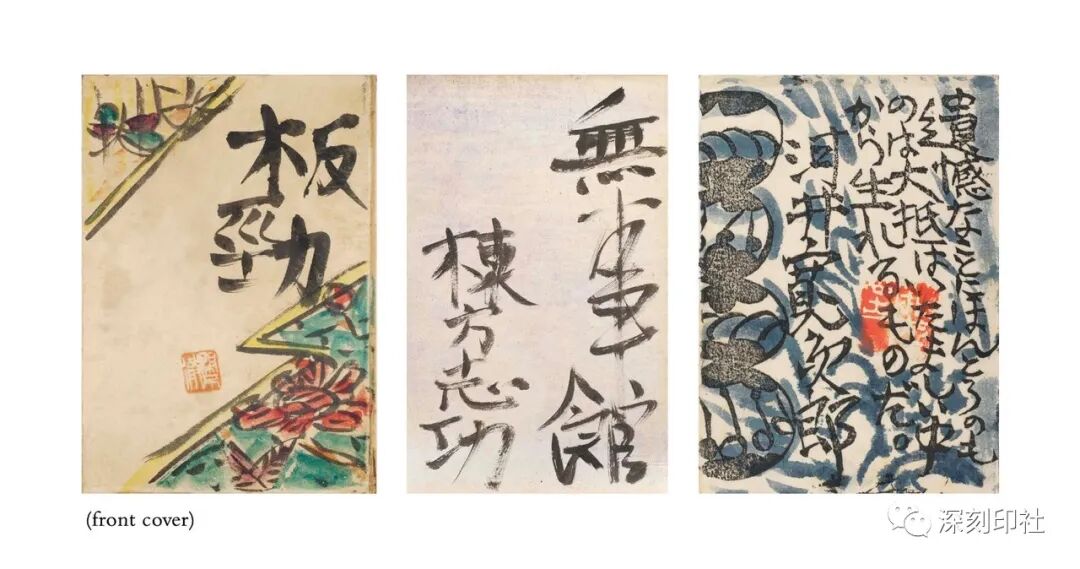 板勁
無事館
棟方志功
遺憾なことにほんとうのも
のは大抵は、中
から生れるものだ。
河井寬次郎
(front cover)
深刻印社